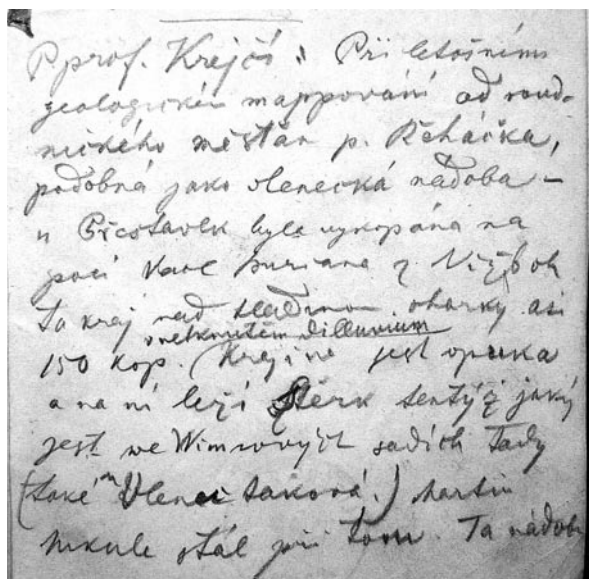 P prof. Krejčí: Při letošním
geologickém mappování od roud-
nického měšťan p. Řeháčka,
podobná jako olenecká nadoba –
u Přestavlk byla vykopána na
poli Karl Buriana z
ta kraj nad hladinou oharky asi
v netknutém dilluvium
150 kop. (Krajina jest opuka
a na ní leží štěrk tentýž jaký
jest we Wimrových sadích tady
(také taková.) Martin
stál při tom. Ta nádoba